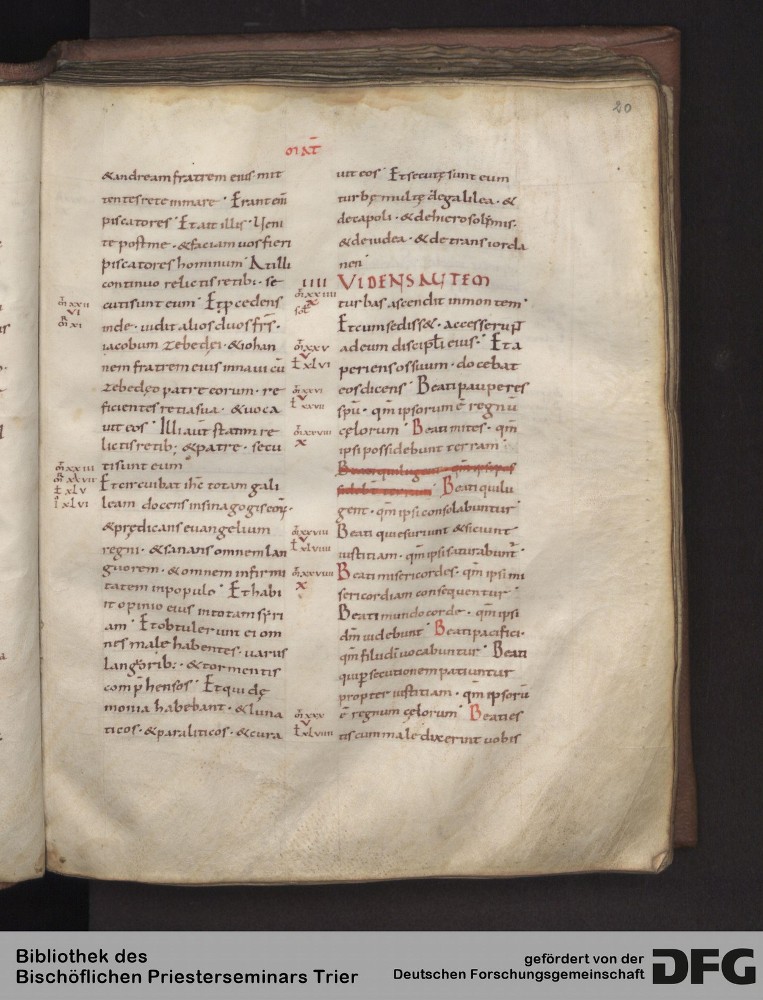 20
MAT̅
&andream fratrem eius mit
tentes rete in mare · Erant eni̅
piscatores · Et ait illis · Ueni
te post me · & faciam uos fieri
piscatores hominum · At illi
continuo relictis retib; · se
cuti sunt eum · Et p̱cedens
inde · uidit alios duos fr̅s ·
iacobum zebedei · & iohan
nem fratrem eius in naui cu̅
zebedęo patre eorum · re
ficientes retia sua · & uoca
uit eos · Illi aut̅ statim re
lictis retib; & patre · secu
ti sunt eum
Et circuibat ih̅c totam gali
leam docens in sinagogis eoꝝ ·
& prędicans euangelium
regni · & sanans omnem lan
guorem · & omnem infirmi
tatem in populo · Et habi
it opinio eius in totam syri
am · Et obtulerunt ei om
nes male habentes · uarus
langorib; · & tormentis
comp̱hensos · Et qui dę
monia habebant · & luna
ticos · & paraliticos · & cura
m̅ xxii
vi
m̅ xxiii
t̅ xlv
i̅ xlvi
uit eos · Et secutę sunt eum
turbę multę de galilea · &
decapoli · & de hierosolimis ·
& de iudea · & de trans iorda
nen
IIII VIDENS AUTEM
turbas ascendit in montem ·
Et cum sediss& · accesserun̅t
ad eum discipl̅i eius · Et a
periens os suum · docebat
eos dicens · Beati pauperes
spu̅ · qm̅ ipsorum e̅ regnu̅
cęlorum · Beati mites · qm̅
ipsi possidebunt terram ·
Beati qui lu
gent · qm̅ ipsi consolabuntur
Beati qui esuriunt & siciunt
iustitiam · qm̅ ipsi saturabunt̅ ·
Beati misericordes · qm̅ ipsi mi
sericordiam consequentur
Beati mundo corde · qm̅ ipsi
dm̅ uidebunt · Beati pacifici ·
qm̅ filii di̅ uocabuntur · Beati
qui p̱secutionem patiuntur
propter iustitiam · qm̅ ipsoru̅
e̅ regnum cęlorum · Beati es
tis cum male dixerint uobis
m̅ xxiiii
x
m̅ xxv
v
t̅ xlvi
m̅ xxvi
v
m̅ xxvii
x
m̅ xxviii
v
t̅ xlviii
m̅ xxviiii
x
m̅ xxx
v
t̅ xlviiii
Bibliothek des
Bischöflichen Priesterseminars Trier
gefördert von der
Deutschen Forschungsgemeinschaft
DFG